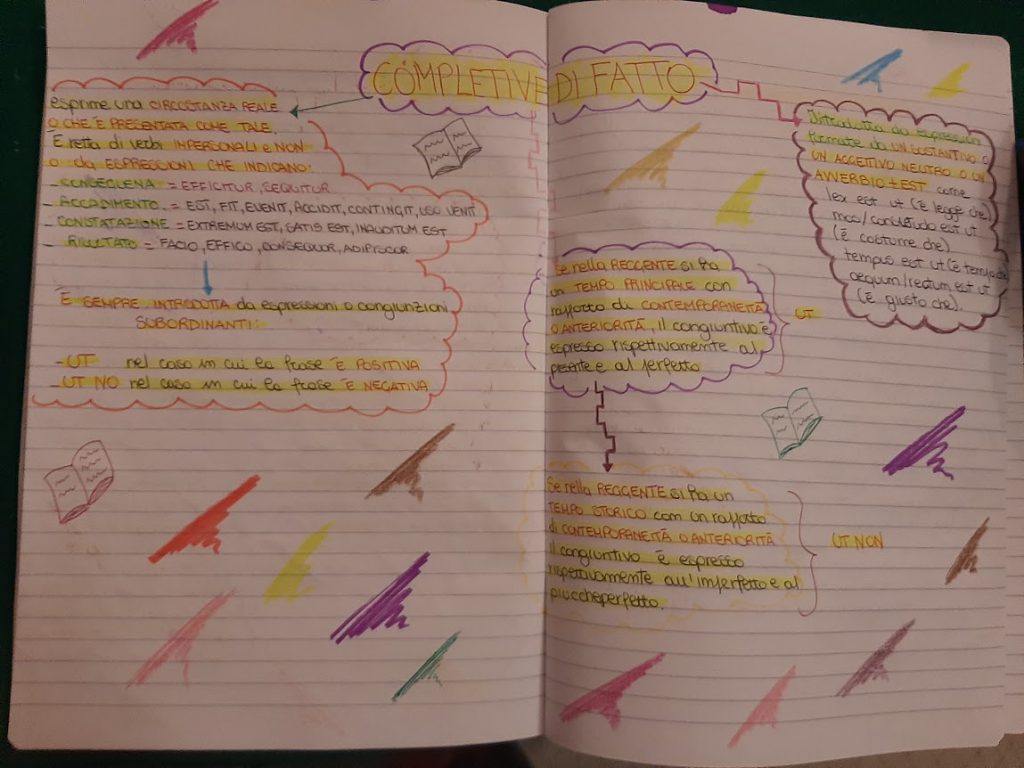 COMPLETIVE DI FATTO
esprime una CIRCOSTANZA REALE
O CHE È PRESENTATA COME TALE.
È retta di verbi IMPERSONALI e NON
o da ESPRESSIONI CHE INDICANO:
- CONSEGUENA = EFFICITUR, SEQUITUR
- ACCADIMENTO = EST, FIT, EVENIT, ACCIDIT, CONTINGIT, USO VENIT
- CONSTATAZIONE = EXTREMUM EST, SATIS EST, INAUDITUM EST
- RISULTATO = FACIO, EFFICO, CONSEQUOR, ADIPISCOR
È SEMPRE INTRODOTTA da espressioni o congiunzioni
SUBORDINANTI:
- UT nel caso in cui la frase È POSITIVA
- UT NO nel caso in cui la frase È NEGATIVA
da espressioni
formate da UN SOSTANTIVO O
UN AGGETIVO NEUTRO O UN
AVVERBIO + EST come
lex est ut (è legge che)
mos/consuetudo est ut
(è costume che)
tempus est ut (è tempo che
aequum/rectum est ut
(è giusto che).
Se nella REGGENTE si ha
un TEMPO PRINCIPALE con
rapporto di CONTEMPORANEITÀ
O ANTERIORITÀ, il congiuntivo è
espresso rispettivamente al
presente e al perfetto
UT
Se nella REGGENTE si ha un
TEMPO STORICO com un rapporto
di CONTEMPORANEITÀ O ANTERIORITÀ
il congiuntivo è espresso
rispettivamente all'imperfetto e al
piuccheperfetto.
UT NON